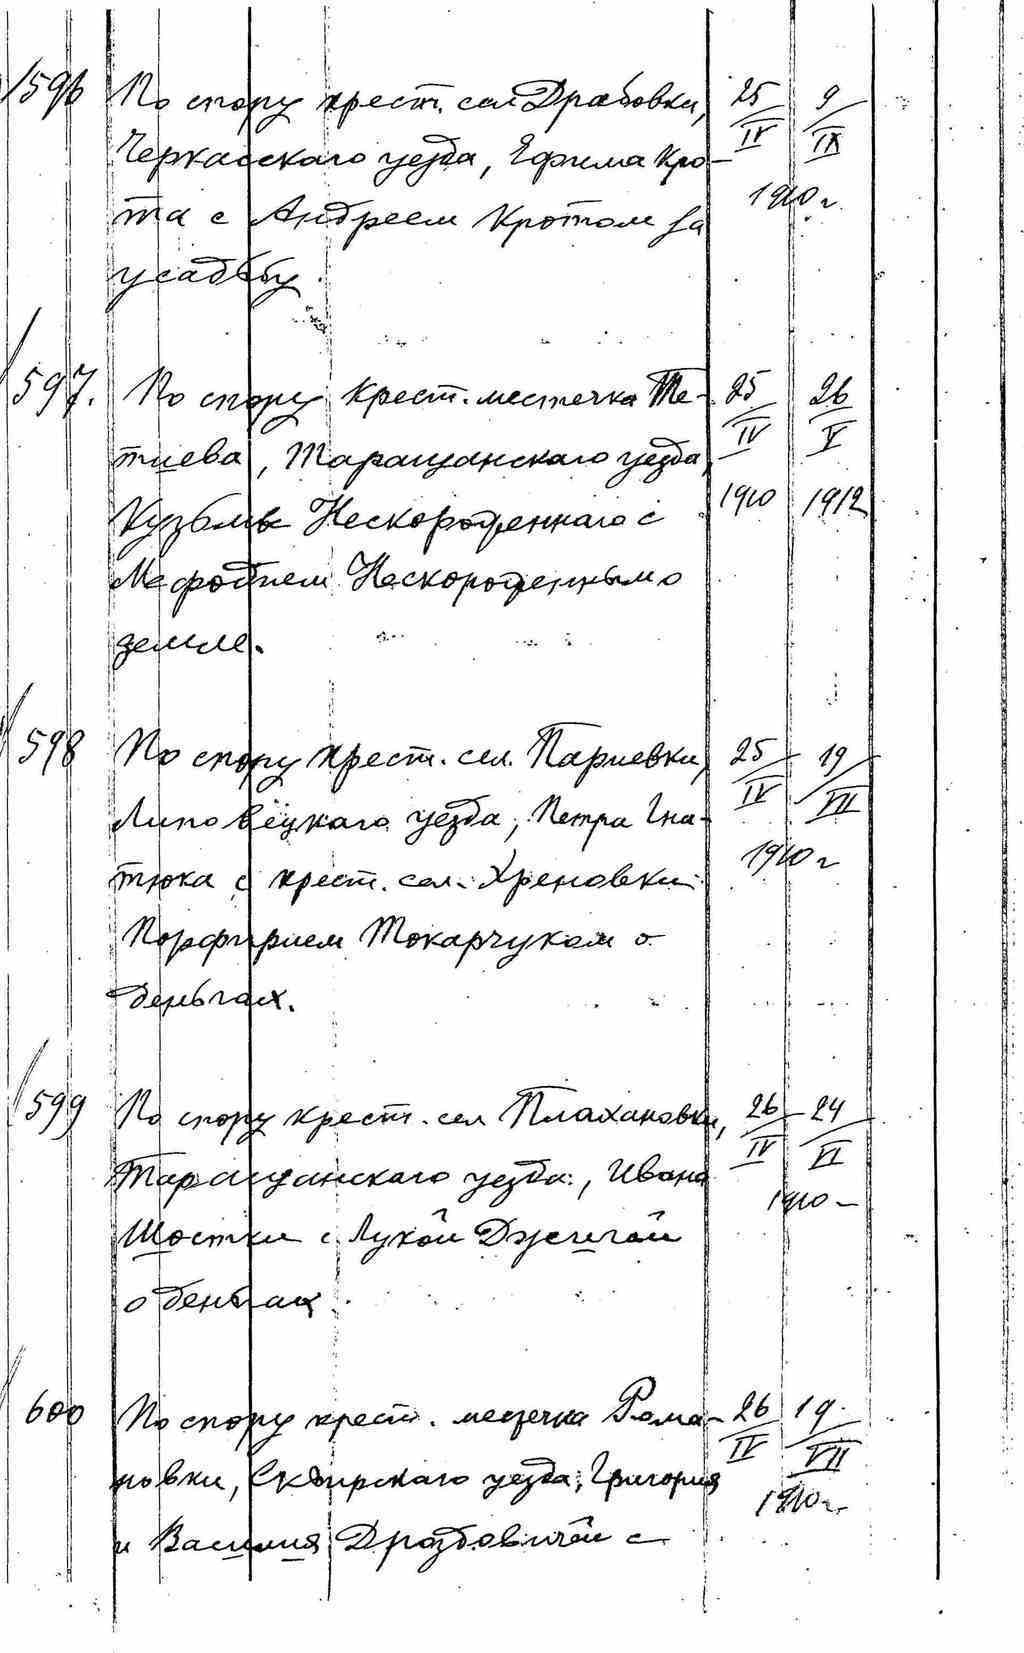 596 По спору крест. сел Драбовки, 25/IV 9/IX
Черкасскаго уезда, Ефима Кро-
та с Андреем Кротом за 1910 г.
усадьбу.
597. По спору крест. местечка Те- 25/IV 26/V
тиева, Таращанскаго уезда,
Кузьмы Нескороженнаго с 1910 1912
Мефодием Нескороженным о
земле.
598 По спору крест. сел. Париевки, 25/IV 19/VII
Липовецкаго уезда, Петра Гна-
тюка с крест. сел. Хреновки 1910 г
Порфирием Токарчуком о
деньгах.
599 По спору крест. сел Плахановки, 26/IV 24/VI
Таращанскаго уезда, Ивана
Шостки с Лукой Джигой 1910 –
о деньгах
600 По спору крест. местечка Рома- 26/IV 19/VII
новки, Сквирскаго уезда, Григория
и Василия Дроздовичей с 1910 г.